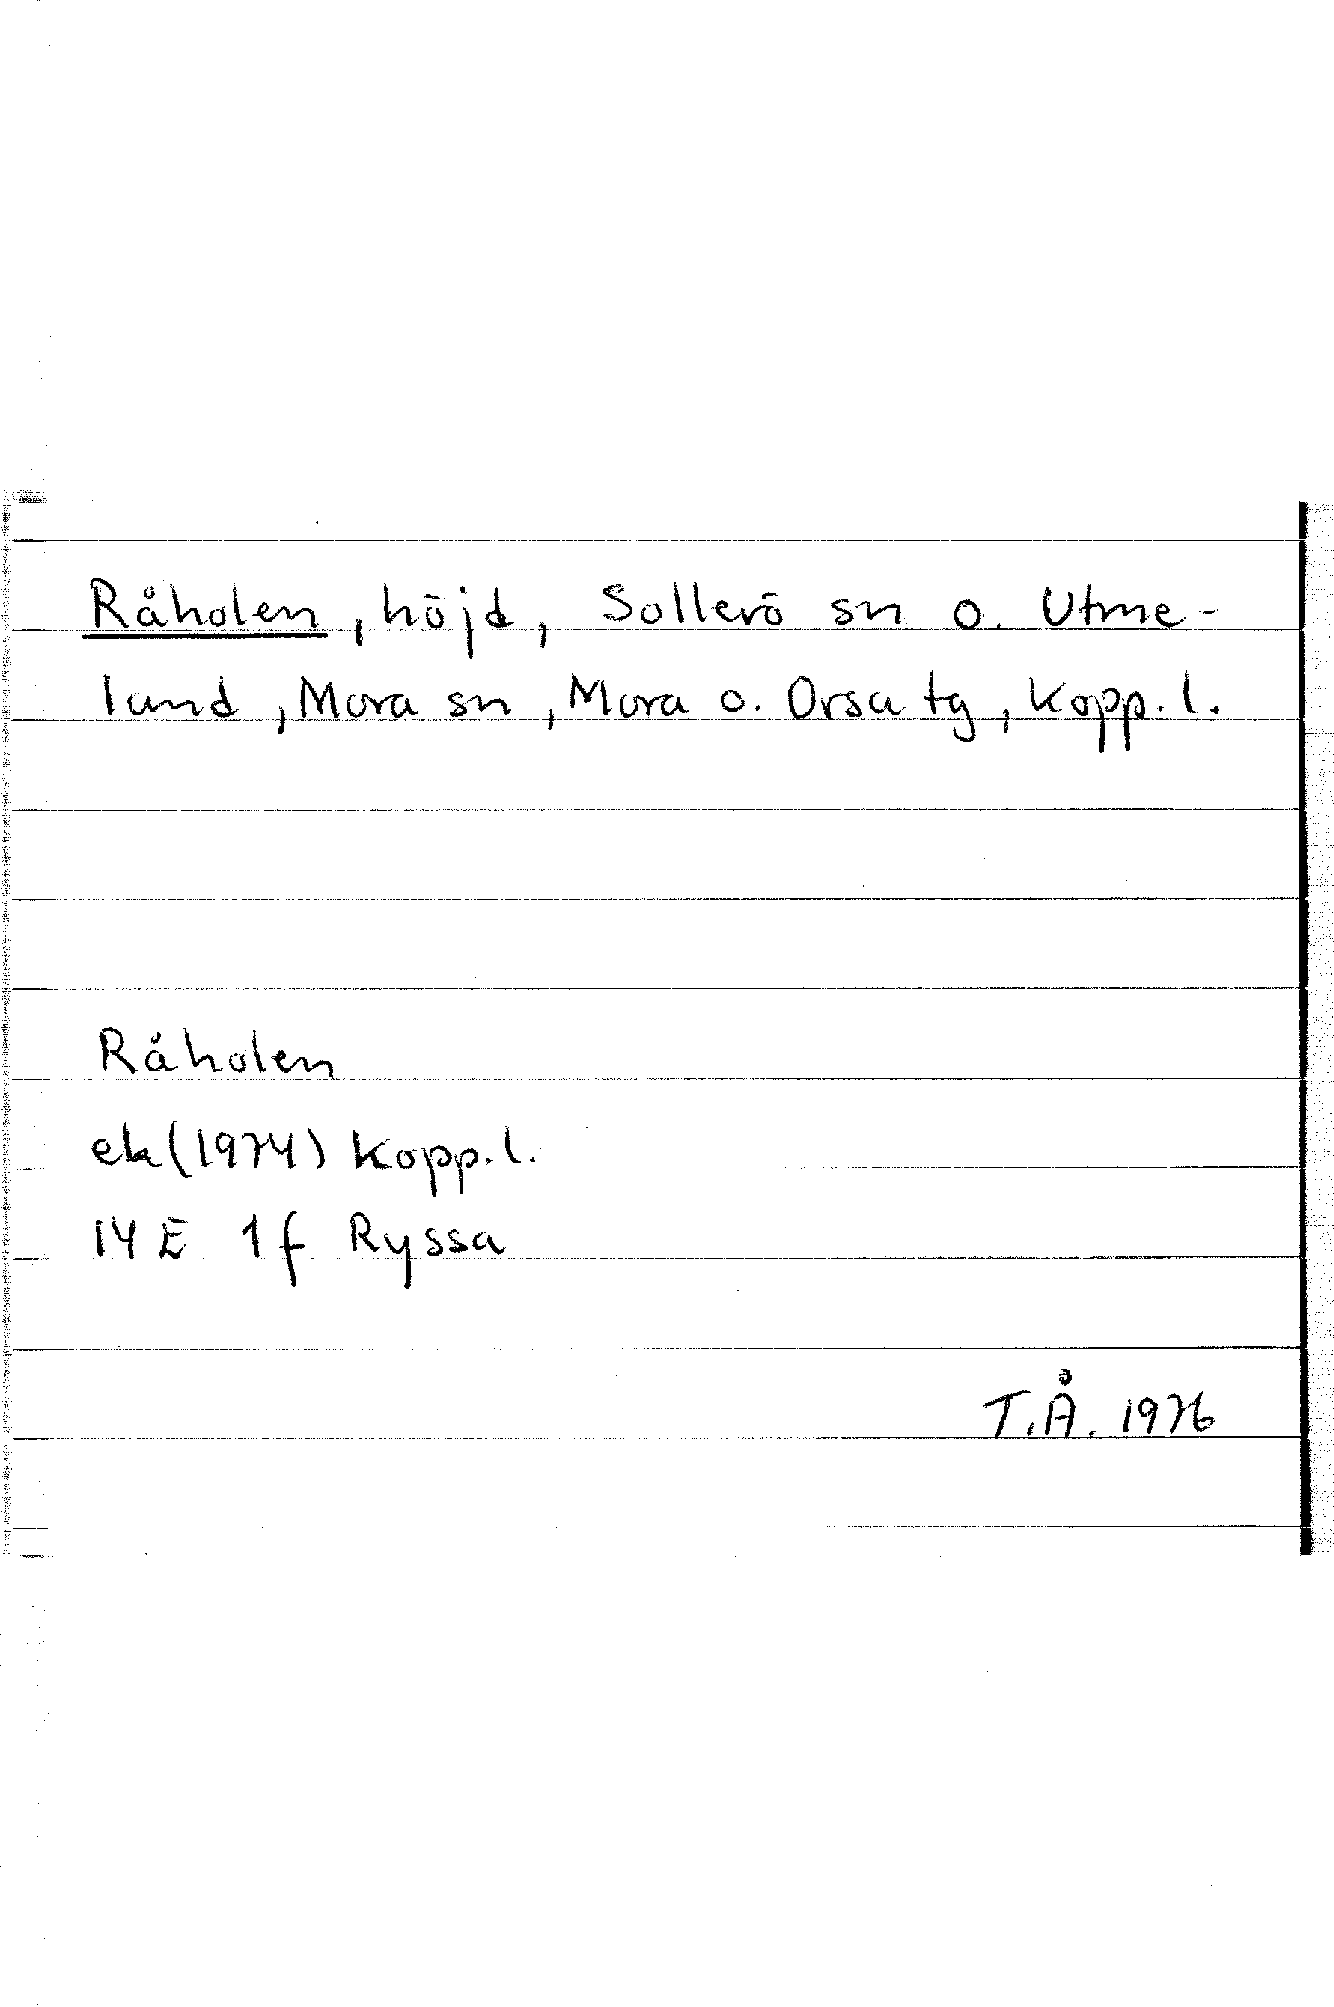 Råholen, höjd, Sollerö sn o. Utme-
land, Mora sn, Mora o. Orsa tg, Kopp. l.
Råholen
ek (1974) Kopp. l.
14 E 1 f Ryssa
T.Å. 1976